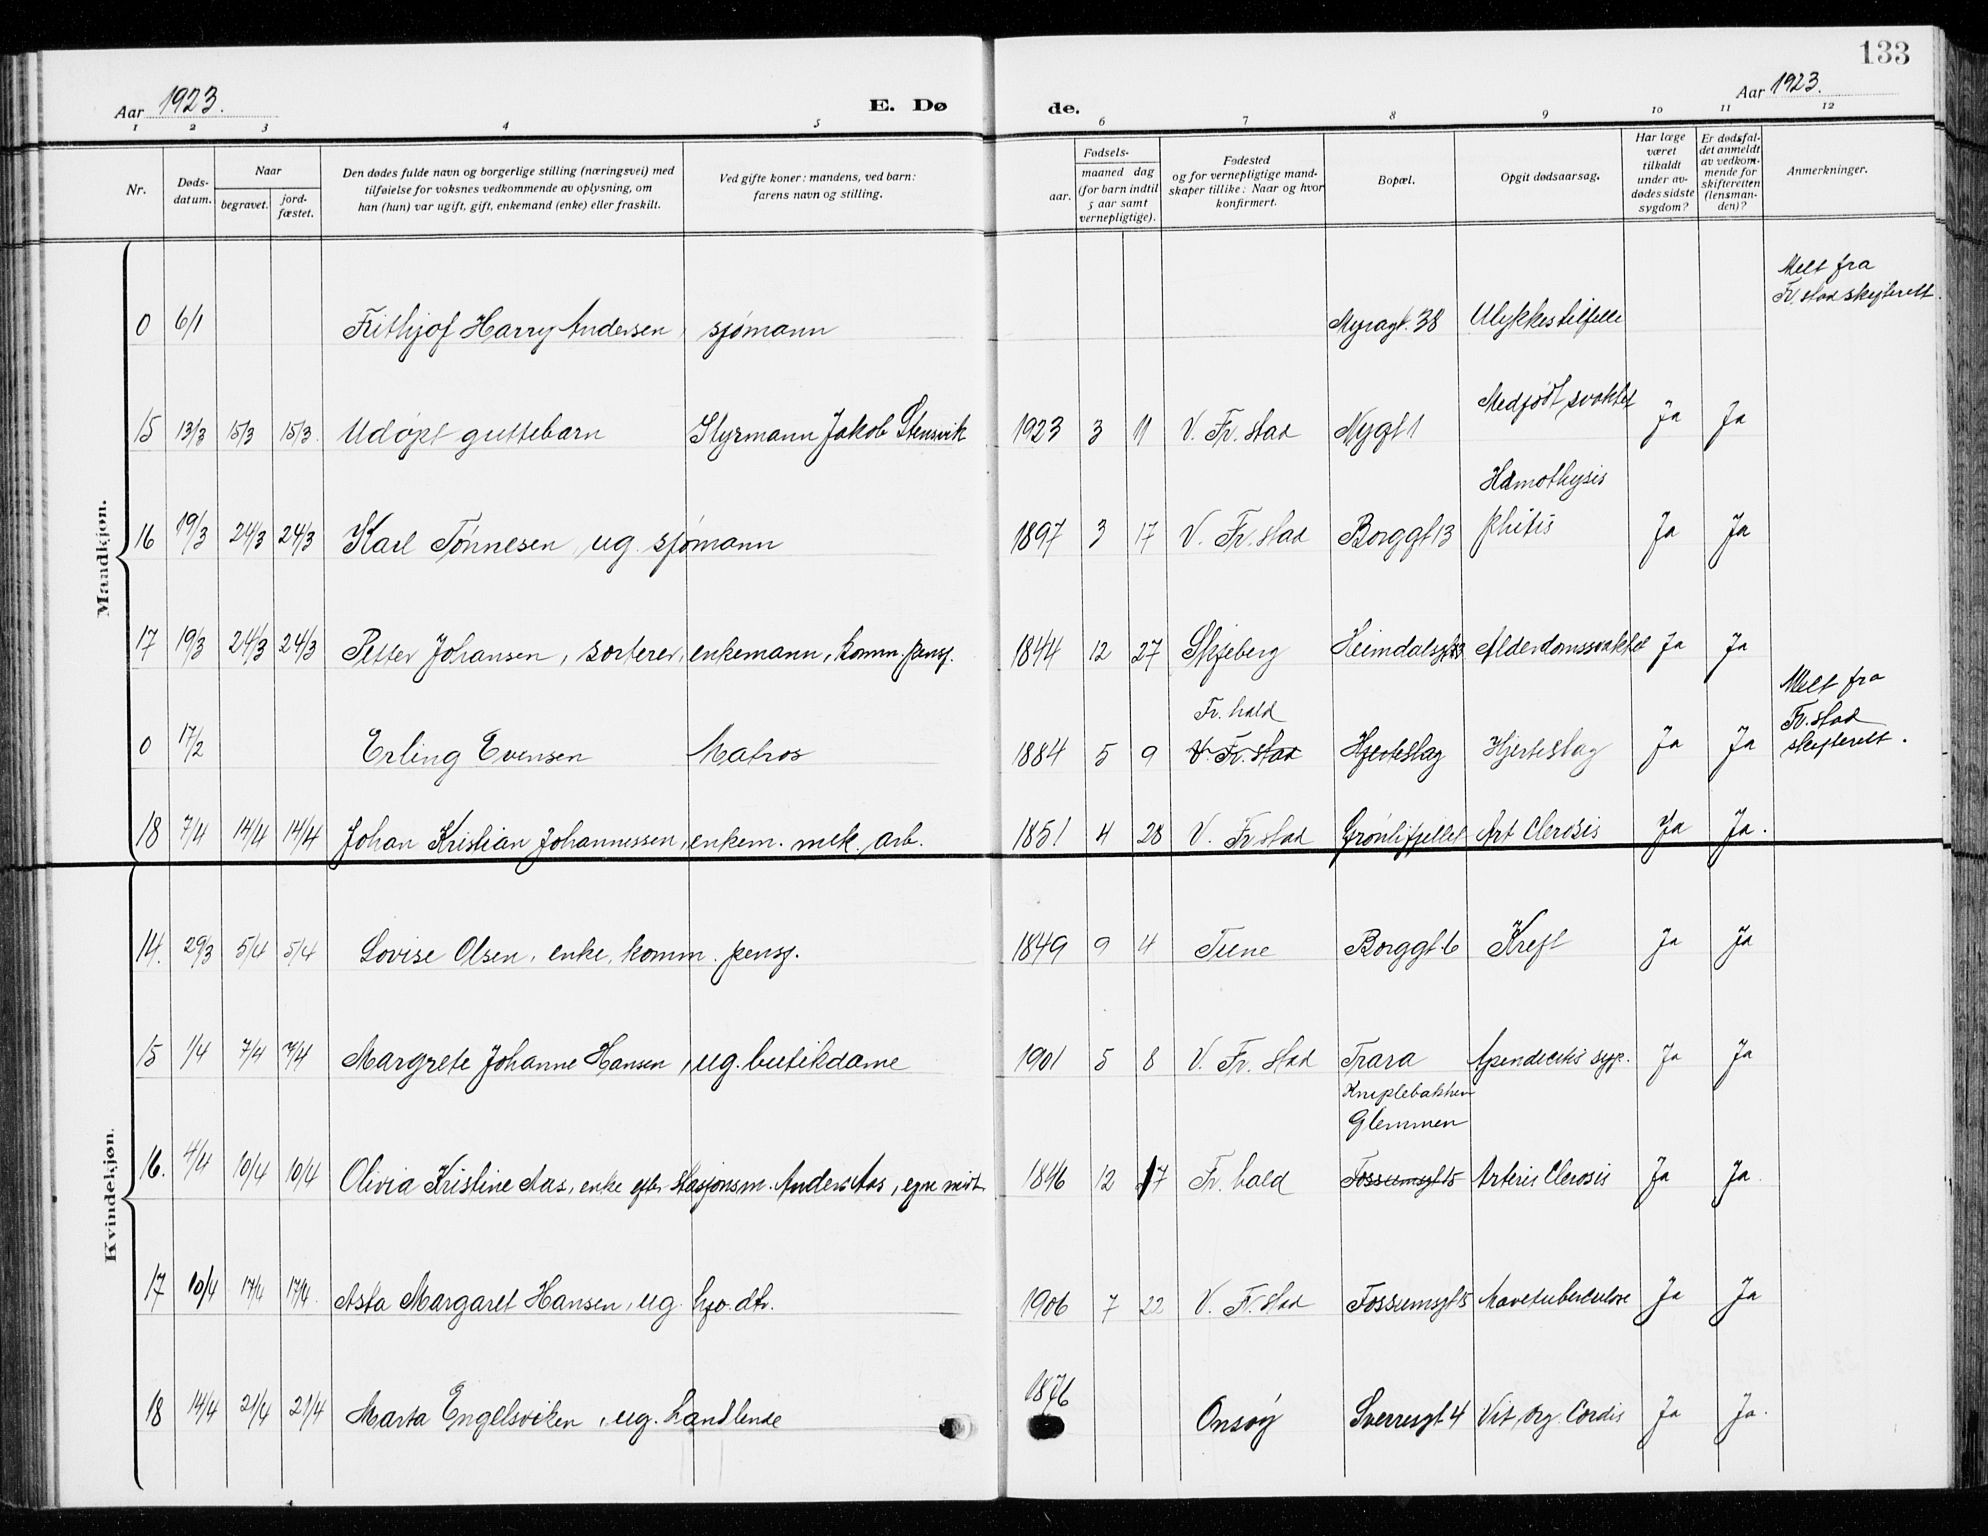 133
Aar 1923. E. Dø de. Aar 1923.
1 2 3 4 5 6 7 8 9 10 11 12
Nr. Døds-datum. Naar begravet. jord-fæstet. Den dødes fulde navn og borgerlige stilling (næringsvei) med tilføielse for voksnes vedkommende av oplysning, om han (hun) var ugift, gift, enkemand (enke) eller fraskilt. Ved gifte koner: mandens, ved barn: farens navn og stilling. Fødsels- aar. maaned dag (for barn indtil 5 aar samt vernepligtige). Fødested og for vernepligtige mand-skaper tillike: Naar og hvor konfirmert. Bopæl. Opgit dødsaarsag. Har læge været tilkaldt under av-dødes sidste sygdom? Er dødsfal-det anmeldt av vedkom-mende for skifteretten (lensman-den)? Anmerkninger.
Mandkjøn.
0 6/1 Frithjof Harry Andersen, sjømann Myragt. 38 Ulykkestilfelle Melt fra Fr.stad skifterett.
15 13/3 15/3 15/3. Udøpt guttebarn Styrmann Jakob Stensvik 1923 3 11 V. Fr. stad Nygt 1 Medfødt svaktet Ja Ja
16 19/3 24/3 24/3 Karl Tønnesen, ug. sjømann 1897 3 17 V. Fr. stad Borggt 13 Hæmothysis phitis Ja Ja
17 19/3 24/3 24/3 Petter Johansen, sorterer, enkemann, komm. pensj. 1844 12 27 Skjeberg Heimdalsgt Alderdomssvaktet Ja Ja
0 17/2 Erling Evensen Matros 1884 5 9 Fr. hald V. Fr. stad Hjerteslag Hjerteslag Ja Ja Melt fra Fr. stad skifterett.
18 7/4 14/4 14/4 Johan Kristian Johannessen, enkem. mek. arb. 1851 4 28 V. Fr stad Grønlifjellet Art Clerosis Ja Ja.
Kvindekjøn.
14. 29/3 5/4 5/4 Lovise Olsen, enke, komm. pensj. 1849 9 4 Tune Borggt 6 Kreft Ja Ja
15 1/4 7/4 7/4 Margrete Johanne Hansen, ug. butikdame 1901 5 8 V. Fr. stad Trara Apendecitis syp. Ja Ja
16. 4/4 10/4 10/4 Olivia Kristine Aas, enke efter Stasjonsm. Anders Aas, egne midt. 1846 12 17 Fr. hald Kniplebakken Glemmen Fossumsgt 15 Arteris Clerosis Ja Ja.
17 10/4 17/4 17/4. Asta Margaret Hansen, ug. hjv. dtr. 1906 7 22 V. Fr. stad Fossumsgt 5 Mavetuberculose Ja Ja
18 14/4 21/4 21/4 Marta Engelsviken, ug. handlende 1876 Onsøy Sverresgt 4 Vit. org. Cordis Ja Ja.